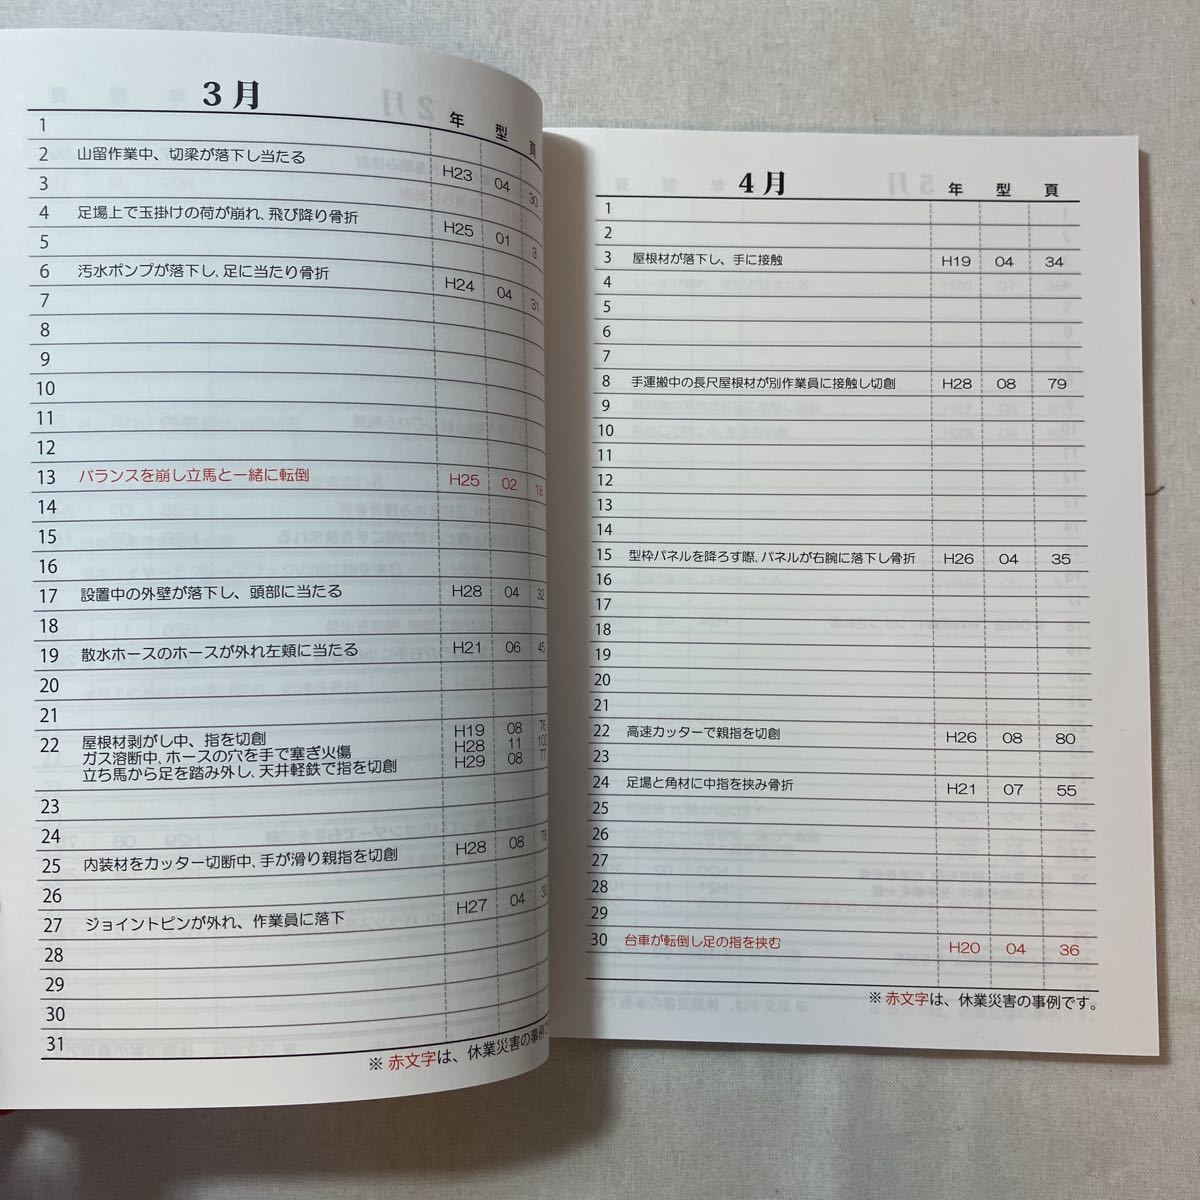 3月
年 型 頁
1
2 山留作業中、切梁が落下し当たる H23 04 30
3
4 足場上で玉掛けの荷が崩れ、飛び降り骨折 H25 01 3
5
6 汚水ポンプが落下し、足に当たり骨折 H24 04 31
7
8
9
10
11
12
13 バランスを崩し立馬と一緒に転倒 H25 02 18
14
15
16
17 設置中の外壁が落下し、頭部に当たる H28 04 32
18
19 散水ホースのホースが外れ左頬に当たる H21 06 45
20
21
22 屋根材剥がし中、指を切創 H19 08 76
ガス溶断中、ホースの穴を手で塞ぎ火傷 H28 11 102
立ち馬から足を踏み外し、天井軽鉄で指を切創 H29 08 77
23
24
25 内装材をカッター切断中、手が滑り親指を切創 H28 08 78
26
27 ジョイントピンが外れ、作業員に落下 H27 04 33
28
29
30
31
※ 赤文字は、休業災害の事例で
4月
年 型 頁
1
2
3 屋根材が落下し、手に接触 H19 04 34
4
5
6
7
8 手運搬中の長尺屋根材が別作業員に接触し切創 H28 08 79
9
10
11
12
13
14
15 型枠パネルを降ろす際、パネルが右腕に落下し骨折 H26 04 35
16
17
18
19
20
21
22 高速カッターで親指を切創 H26 08 80
23
24 足場と角材に中指を挟み骨折 H21 07 55
25
26
27
28
29
30 台車が転倒し足の指を挟む H20 04 36
※ 赤文字は、休業災害の事例です。